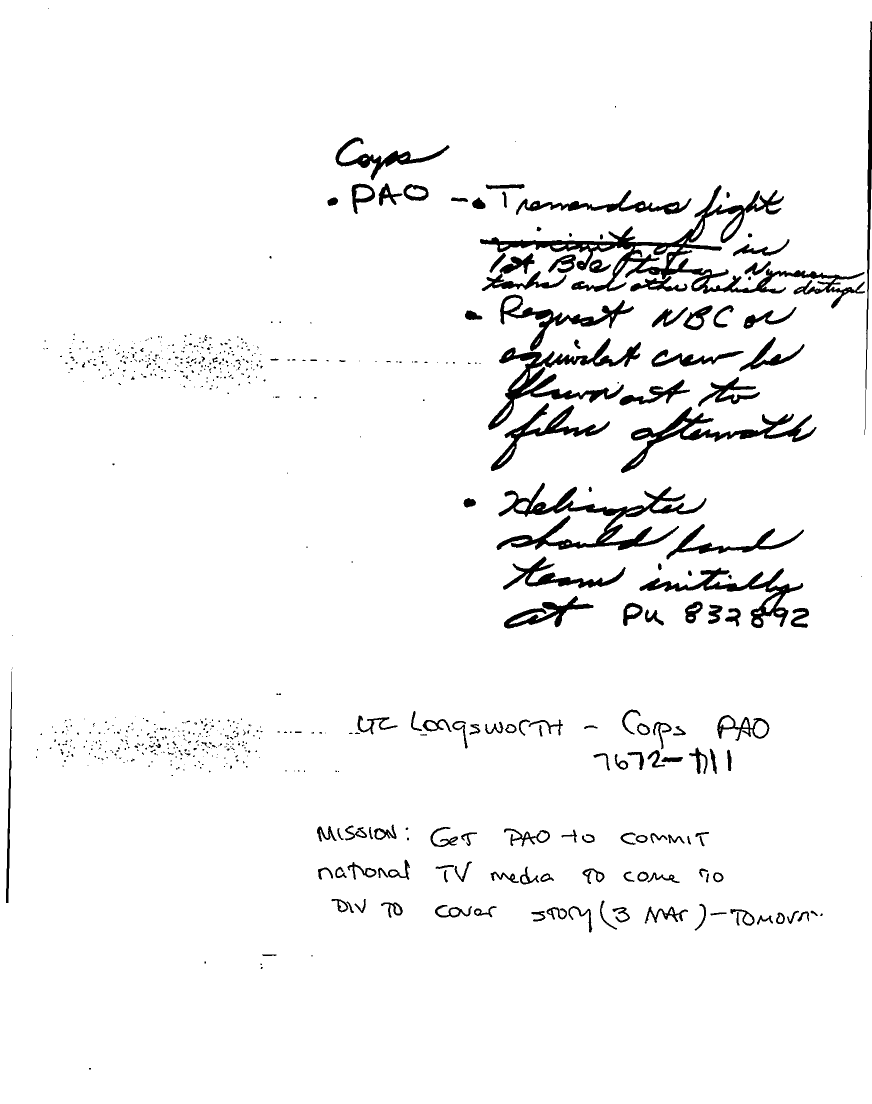 Corps
• PAO – • Tremendous fight
vicinity of in
1st Bde today Numerous
tanks and other vehicles destroyed
• Request NBC or
equivalent crew be
flown out to
film aftermath
• Helicopter
should land
team initially
at PU 832892
LTC Longsworth – Corps PAO
7672–
MISSION: Get PAO to commit
national TV media to come to
DIV to cover story (3 Mar) – Tomorrow